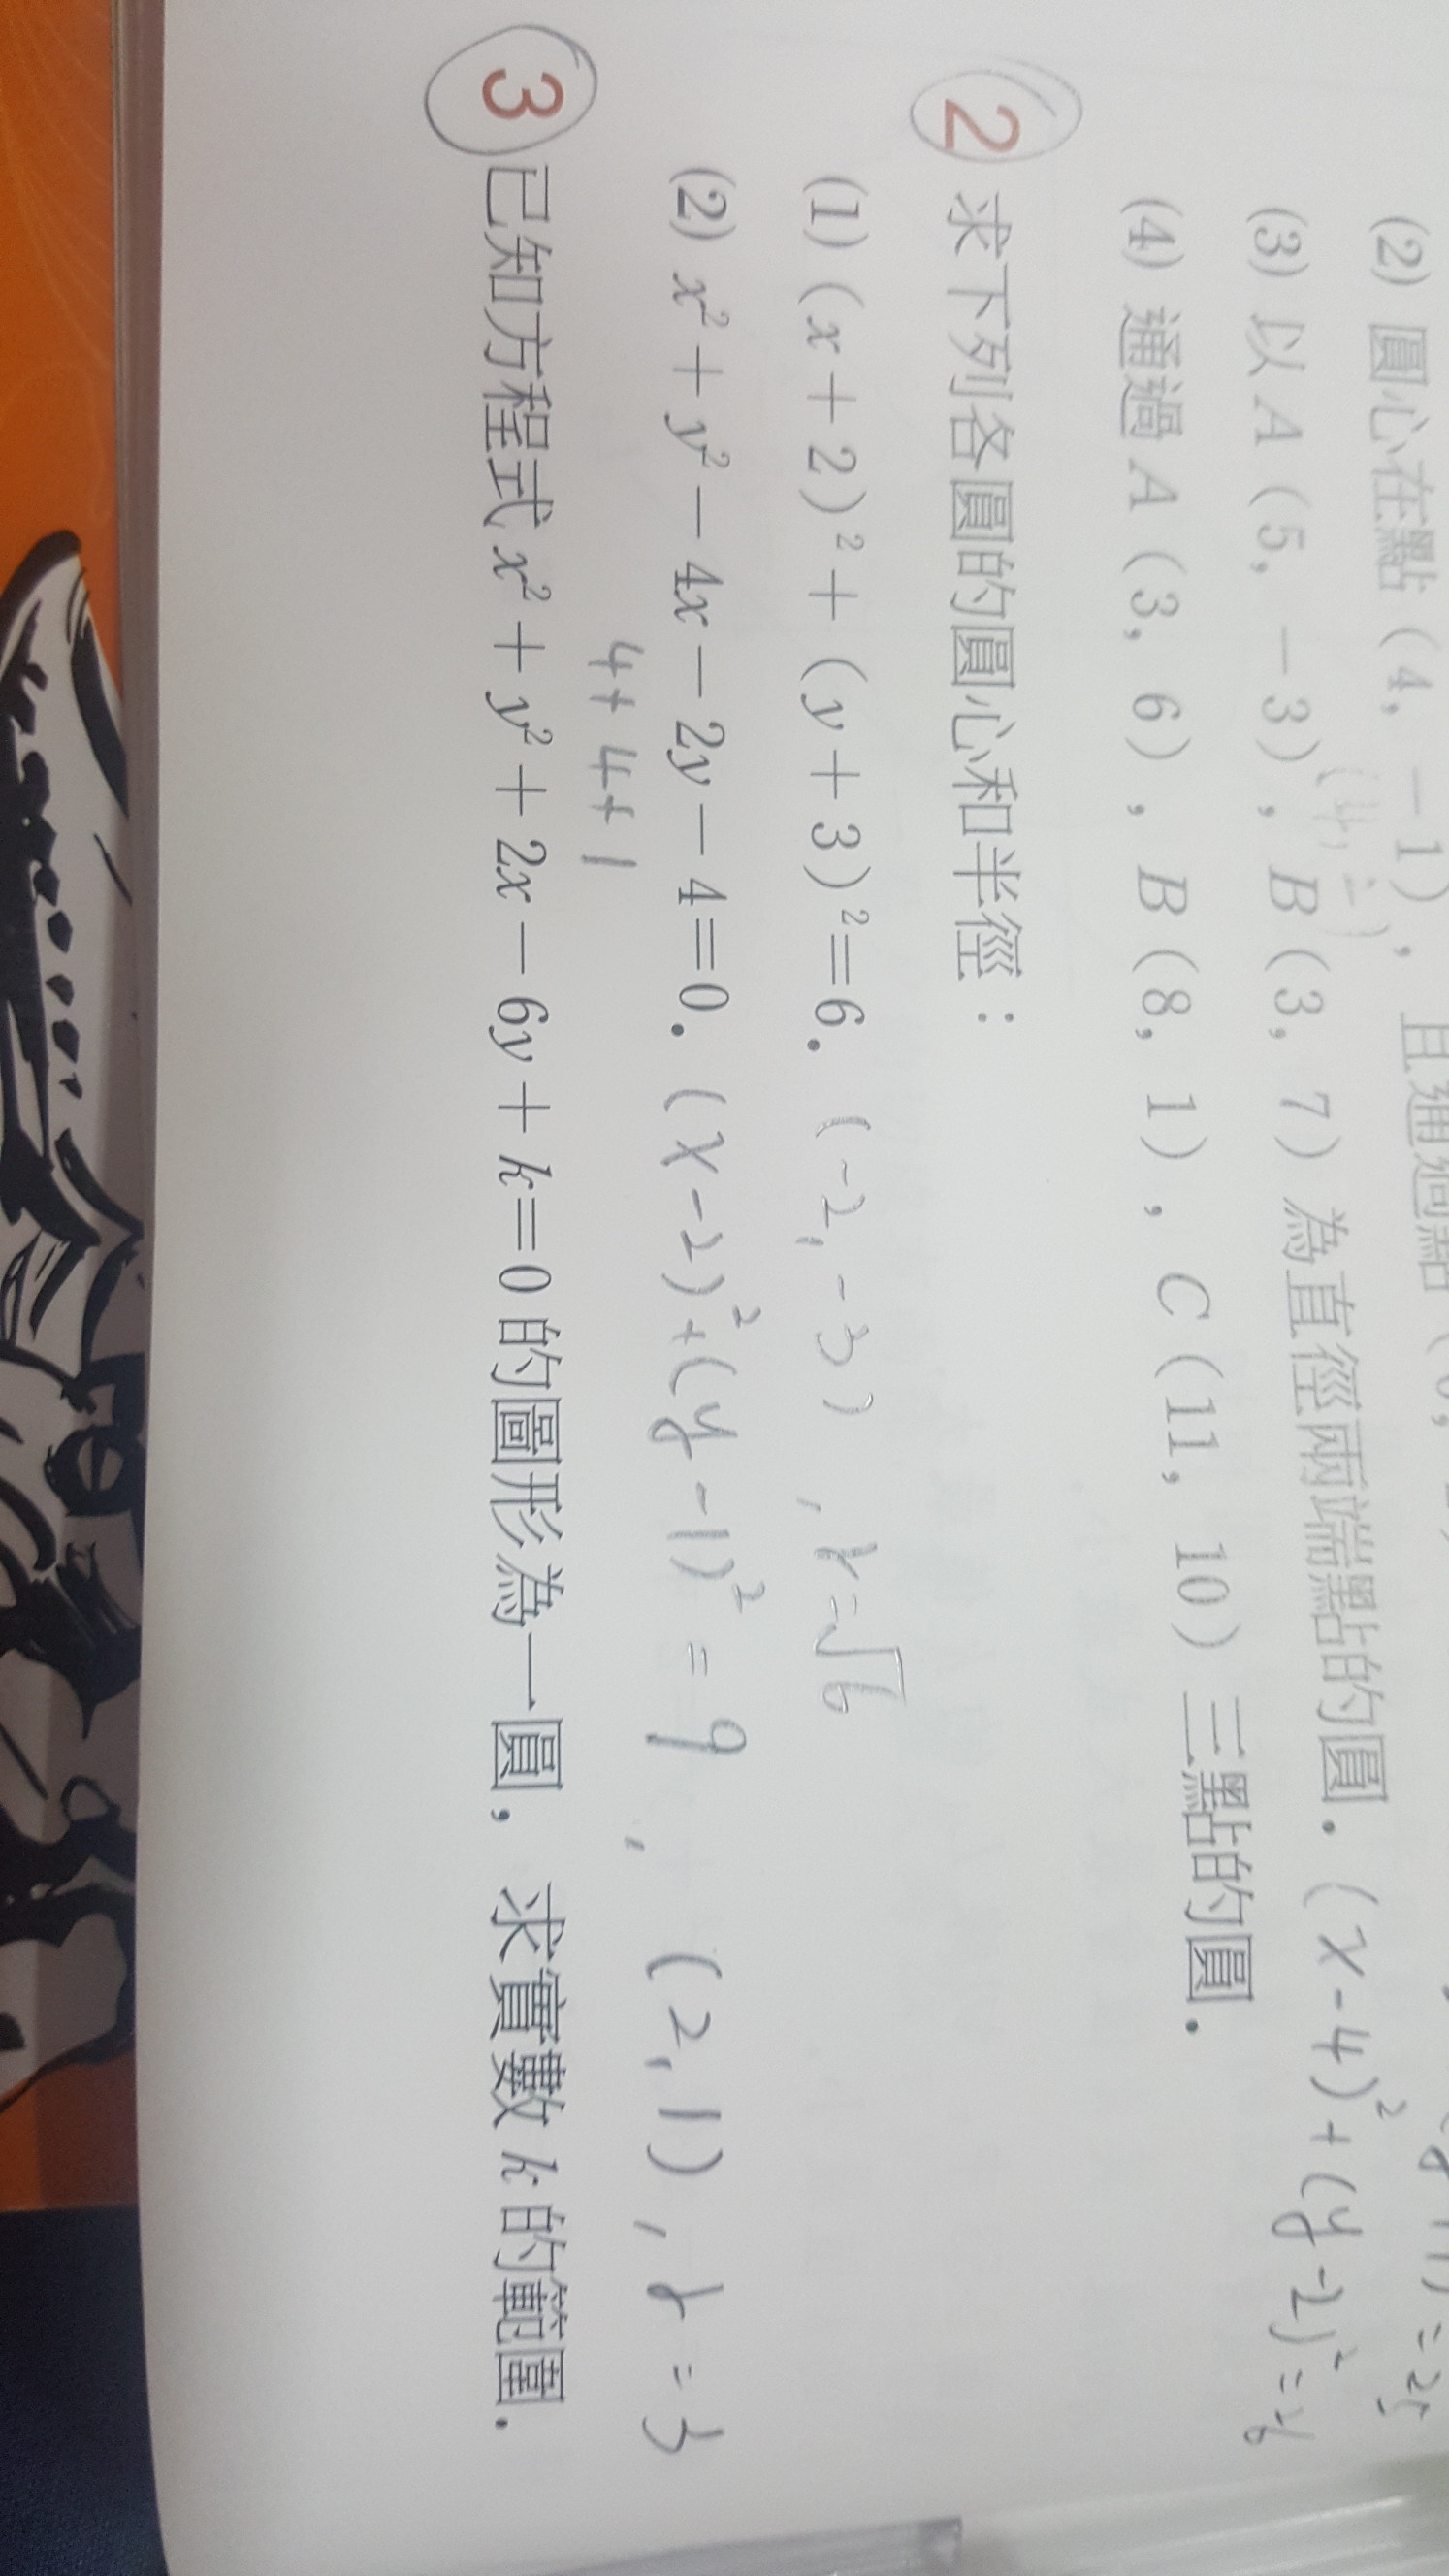 (2) 圓心在點 (4, -1), 且通過點
(3) 以 A (5, -3), B (3, 7) 為直徑兩端點的圓. (x-4)²+(y-2)²=26
(4) 通過 A (3, 6), B (8, 1), C (11, 10) 三點的圓.
2 求下列各圓的圓心和半徑:
(1) (x+2)²+(y+3)²=6. (-2, -3), r=√6
(2) x²+y²-4x-2y-4=0. (x-2)²+(y-1)²=9, (2,1), r=3
4+4+1
3 已知方程式 x²+y²+2x-6y+k=0 的圖形為一圓, 求實數 k 的範圍.